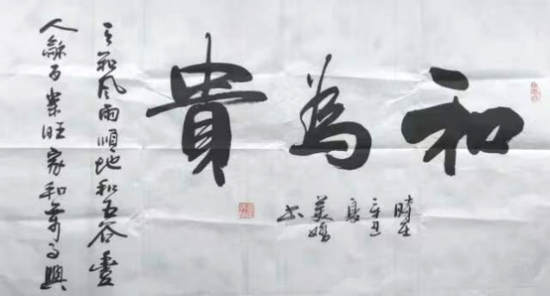 和為貴
時在
辛丑
夏
美
书
天和风雨順地和五谷豊
人龢百業旺家和萬事興